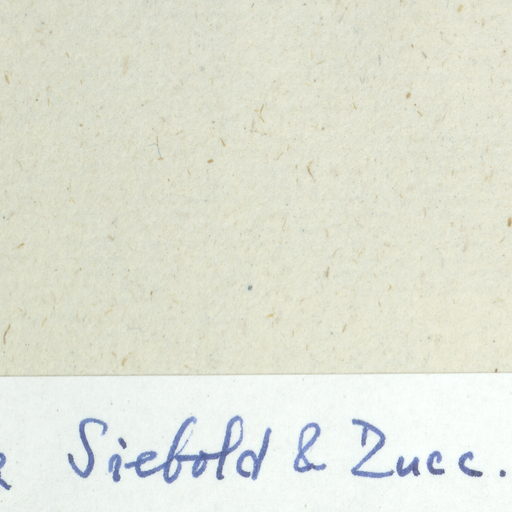 Siebold & Zucc.